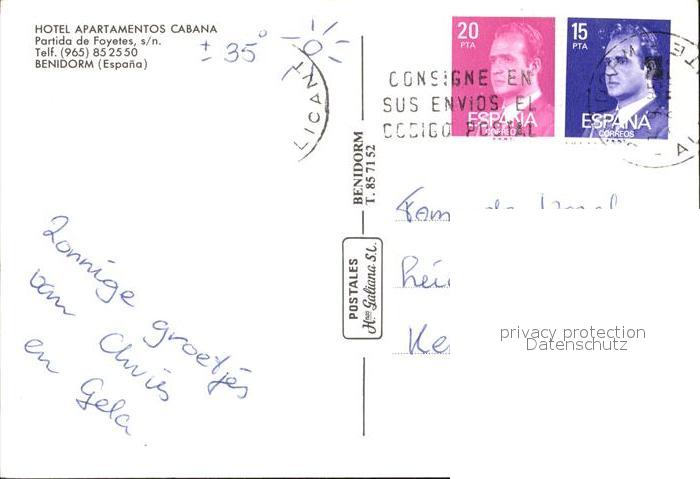 HOTEL APARTAMENTOS CABANA
Partida de Foyetes, s/n.
Telf. (965) 85 25 50
BENIDORM (España)
± 35°
LICANT
CONSIGNE EN
SUS ENVIOS EL
CODIGO POSTAL
20
PTA
ESPAÑA
CORREOS
15
PTA
ESPAÑA
CORREOS
BENIDORM
T. 85 71 52
POSTALES
Hnos Galiana S.L.
Zonnige groetjes
van Chris
en Gela.
Fam
privacy protection
Datenschutz